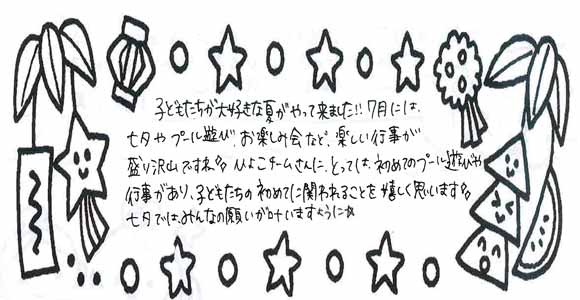 子どもたちが大好きな夏がやって来ました!! 7月には、
七夕や プール遊び、お楽しみ会など、楽しい行事が
盛り沢山ですね♪♪ ひよこチームさんに、とっては、初めてのプール遊びや
行事があり、子どもたちの初めてに関われることを嬉しく思います♪♪
七夕では、みんなの願いが叶いますように☆